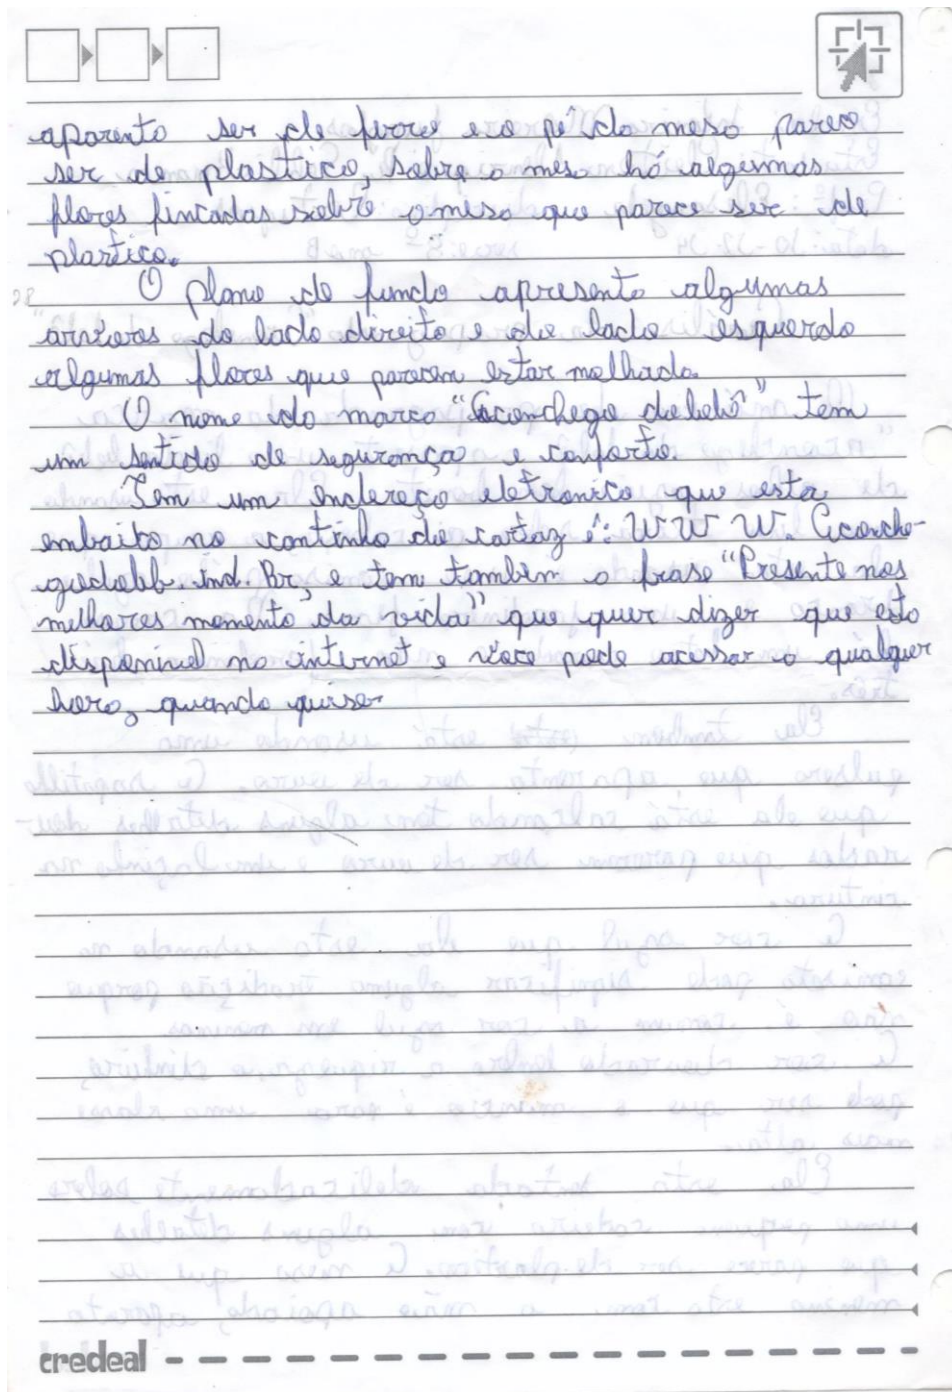 aparenta ser de ferro e o pé da mesa parece
ser de plastico, sobre a mesa há algumas
flores fincadas sobre a mesa que parece ser de
plastico.
O plano de fundo apresenta algumas
arvores do lado direito e do lado esquerdo
algumas flores que parecem estar molhada.
O nome da marca "Aconchego do bebê" tem
um sentido de segurança e conforto.
Tem um endereço eletronico que esta
embaixo no cantinho do cartaz é: WWW. Aconche-
godobb. Ind. Br, e tem também a frase "Presente nos
melhores momento da vida" que quer dizer que esta
disponivel na internet e voce pode acessar a qualquer
hora, quando quiser
credeal